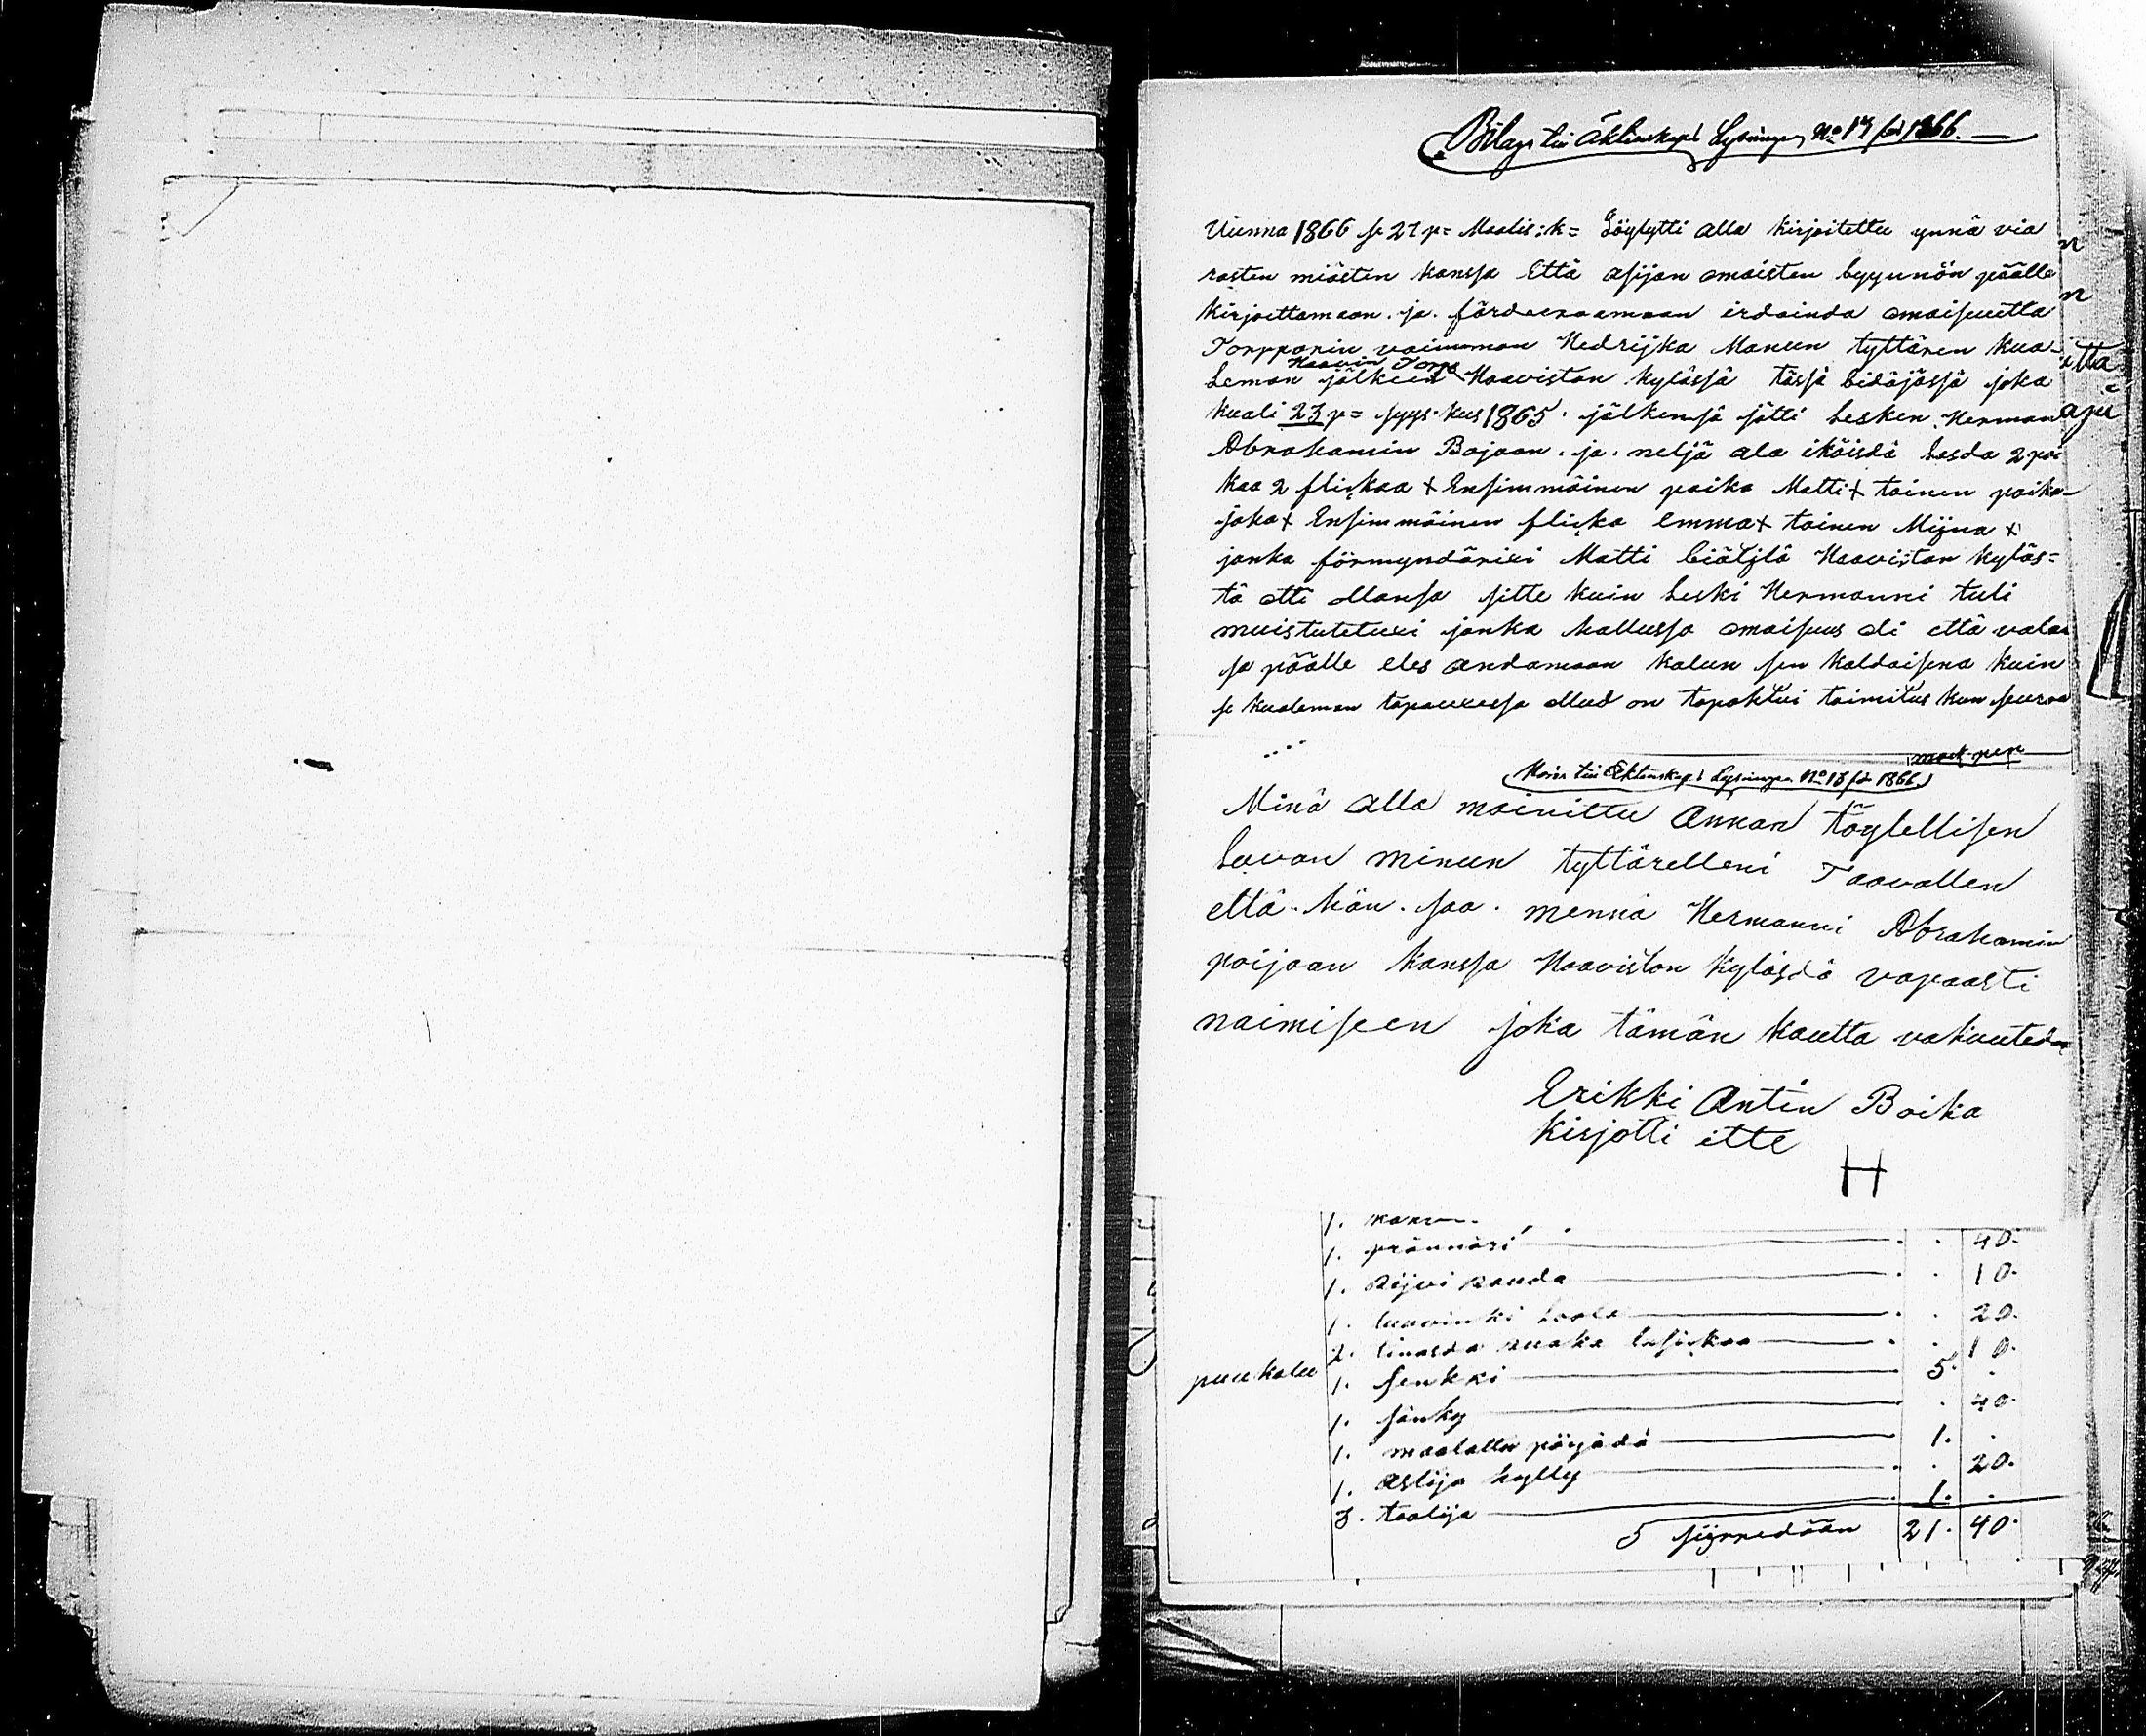 Bilaga till Äktenskaps Lysningen No 14 för 1866.
Vuonna 1866 se 27 p= Maalis:k= Löytytti alla kirjoitettu ynnä via
rasten miästen kanssa Että asijan omaisten byynnön päälle
kirjoittamaan. ja. färdeeraamaan irdainda omaisuutta
Torpparin vaimman Hedrijka Manun tyttären kua-
Haavin Torpa
leman jälkeen Haaviston kylässä tässä bidäjässä joka
kuali 23 p= syys.kus 1865. jälkensä jätti Lesken Herman
Abrahamin Bojaan. ja. neljä ala ikäisdä Lasda 2 poi
kaa 2 flickaa + Ensimmäinen poika Matti + toinen poika
joka + Ensimmäinen flicka Emma + toinen Mijna +
jonka förmyndärixi Matti Haaviston kyläs=
tä otti ollansa sitte kuin Leski Hermanni tuli
muistutetuxi jonka hallussa omaisuus oli että valan
sa päälle eles andamaan kalun sen kaldaisena kuin
se kualeman tapauxessa ollud on tapahtui toimitus kun seuraa
mark pen
till Ektenskaps Lysningen No 13 för 1866
Minä alla mainittu Annan täydellisen
Luvan minun tyttärelleni Taavallen
että. hän. saa. mennä Hermanni Abrahamin
poijaan kanssa Haaviston kyläsdä vapaasti
naimiseen joka tämän kautta vakuutedan
Erikki Antin Boika
kirjotti itte
H
1.
1. prännäri . . 40.
1. rauda . . 10.
1. . . 20.
2. linasda ruaka . . 10.
puukalu 1. senkki 5. .
1. sänky . 40.
1. maalattu pöydä 1. .
1. astija hylly . . 20.
3. taalija 1. .
5 siirredään 21. 40.